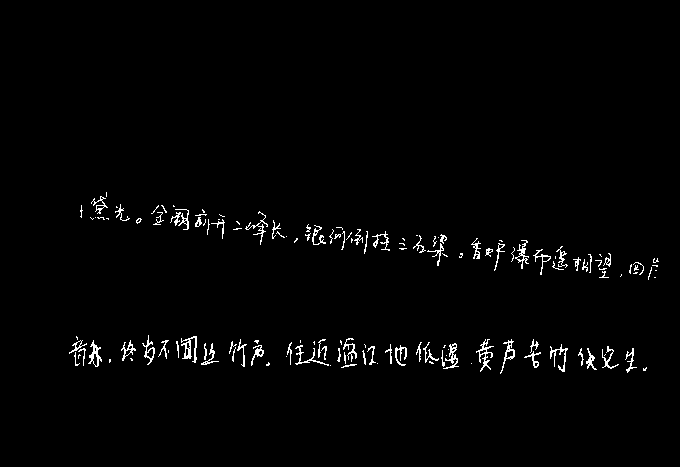 黛光。金阙前开二峰长，银河倒挂三石梁。香炉瀑布遥相望，回
音乐，终岁不闻丝竹声。住近湓江地低湿，黄芦苦竹绕宅生。